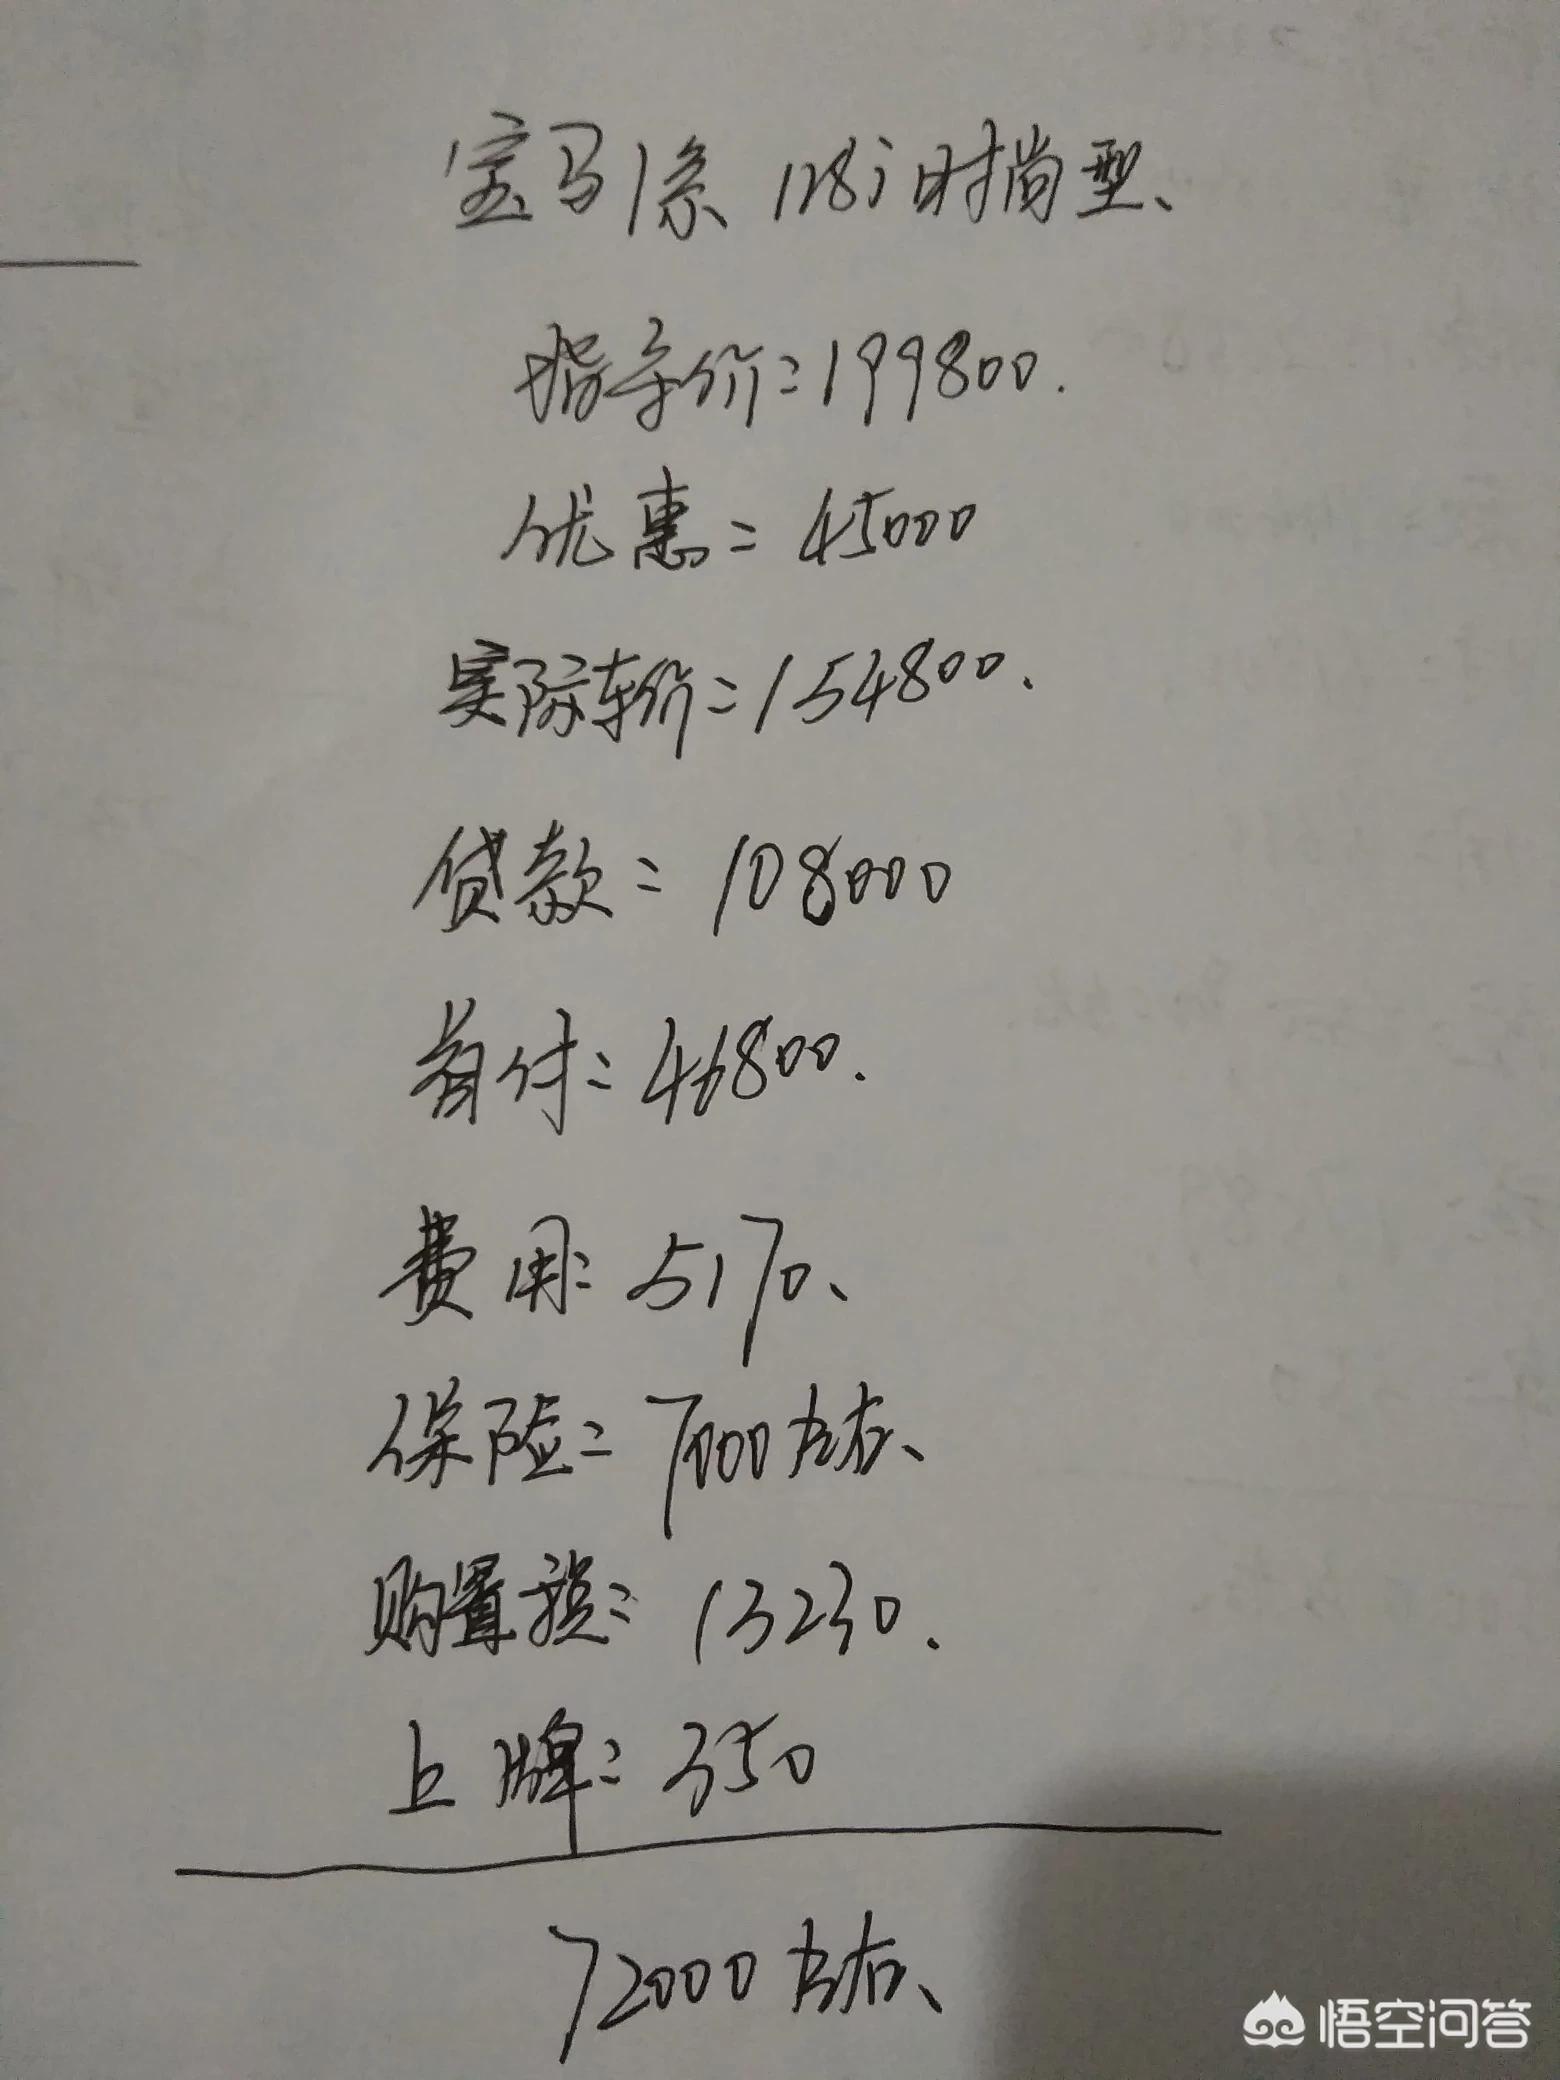 宝马1系 118i时尚型、
指导价=199800.
优惠=45000
实际车价=154800.
贷款=108000
首付=46800.
费用=5170、
保险=7000左右、
购置税=13230.
上牌=350
72000左右、
悟空问答